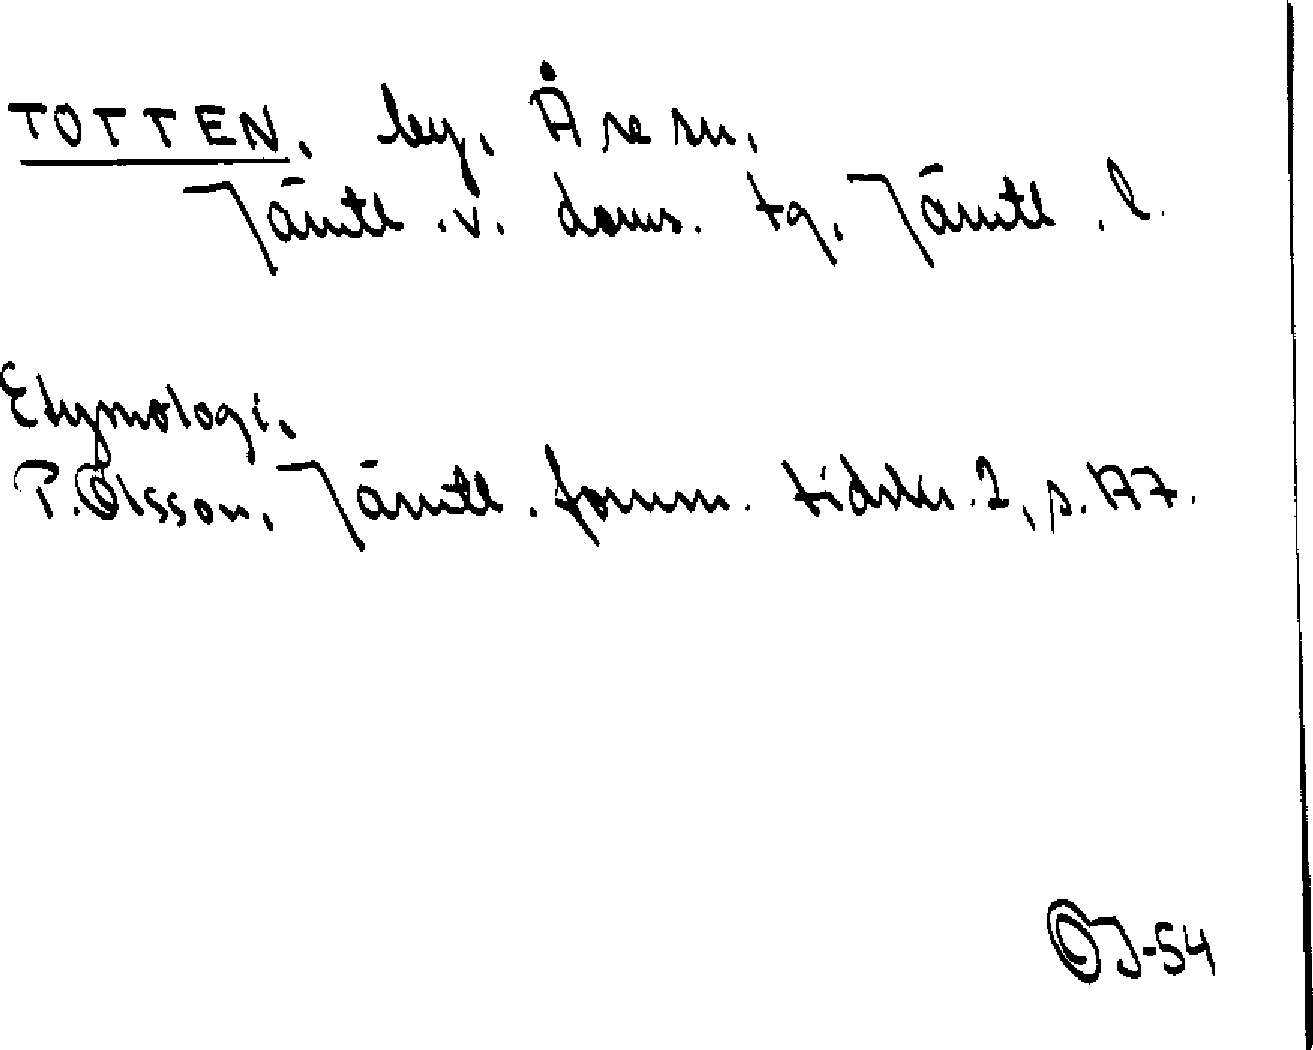 TOTTEN, by, Åre sn,
Jämtl. v. doms. tg, Jämtl. l.
Etymologi,
P. Olsson, Jämtl. fornm. tidskr. 2, s. 177.
OJ-54